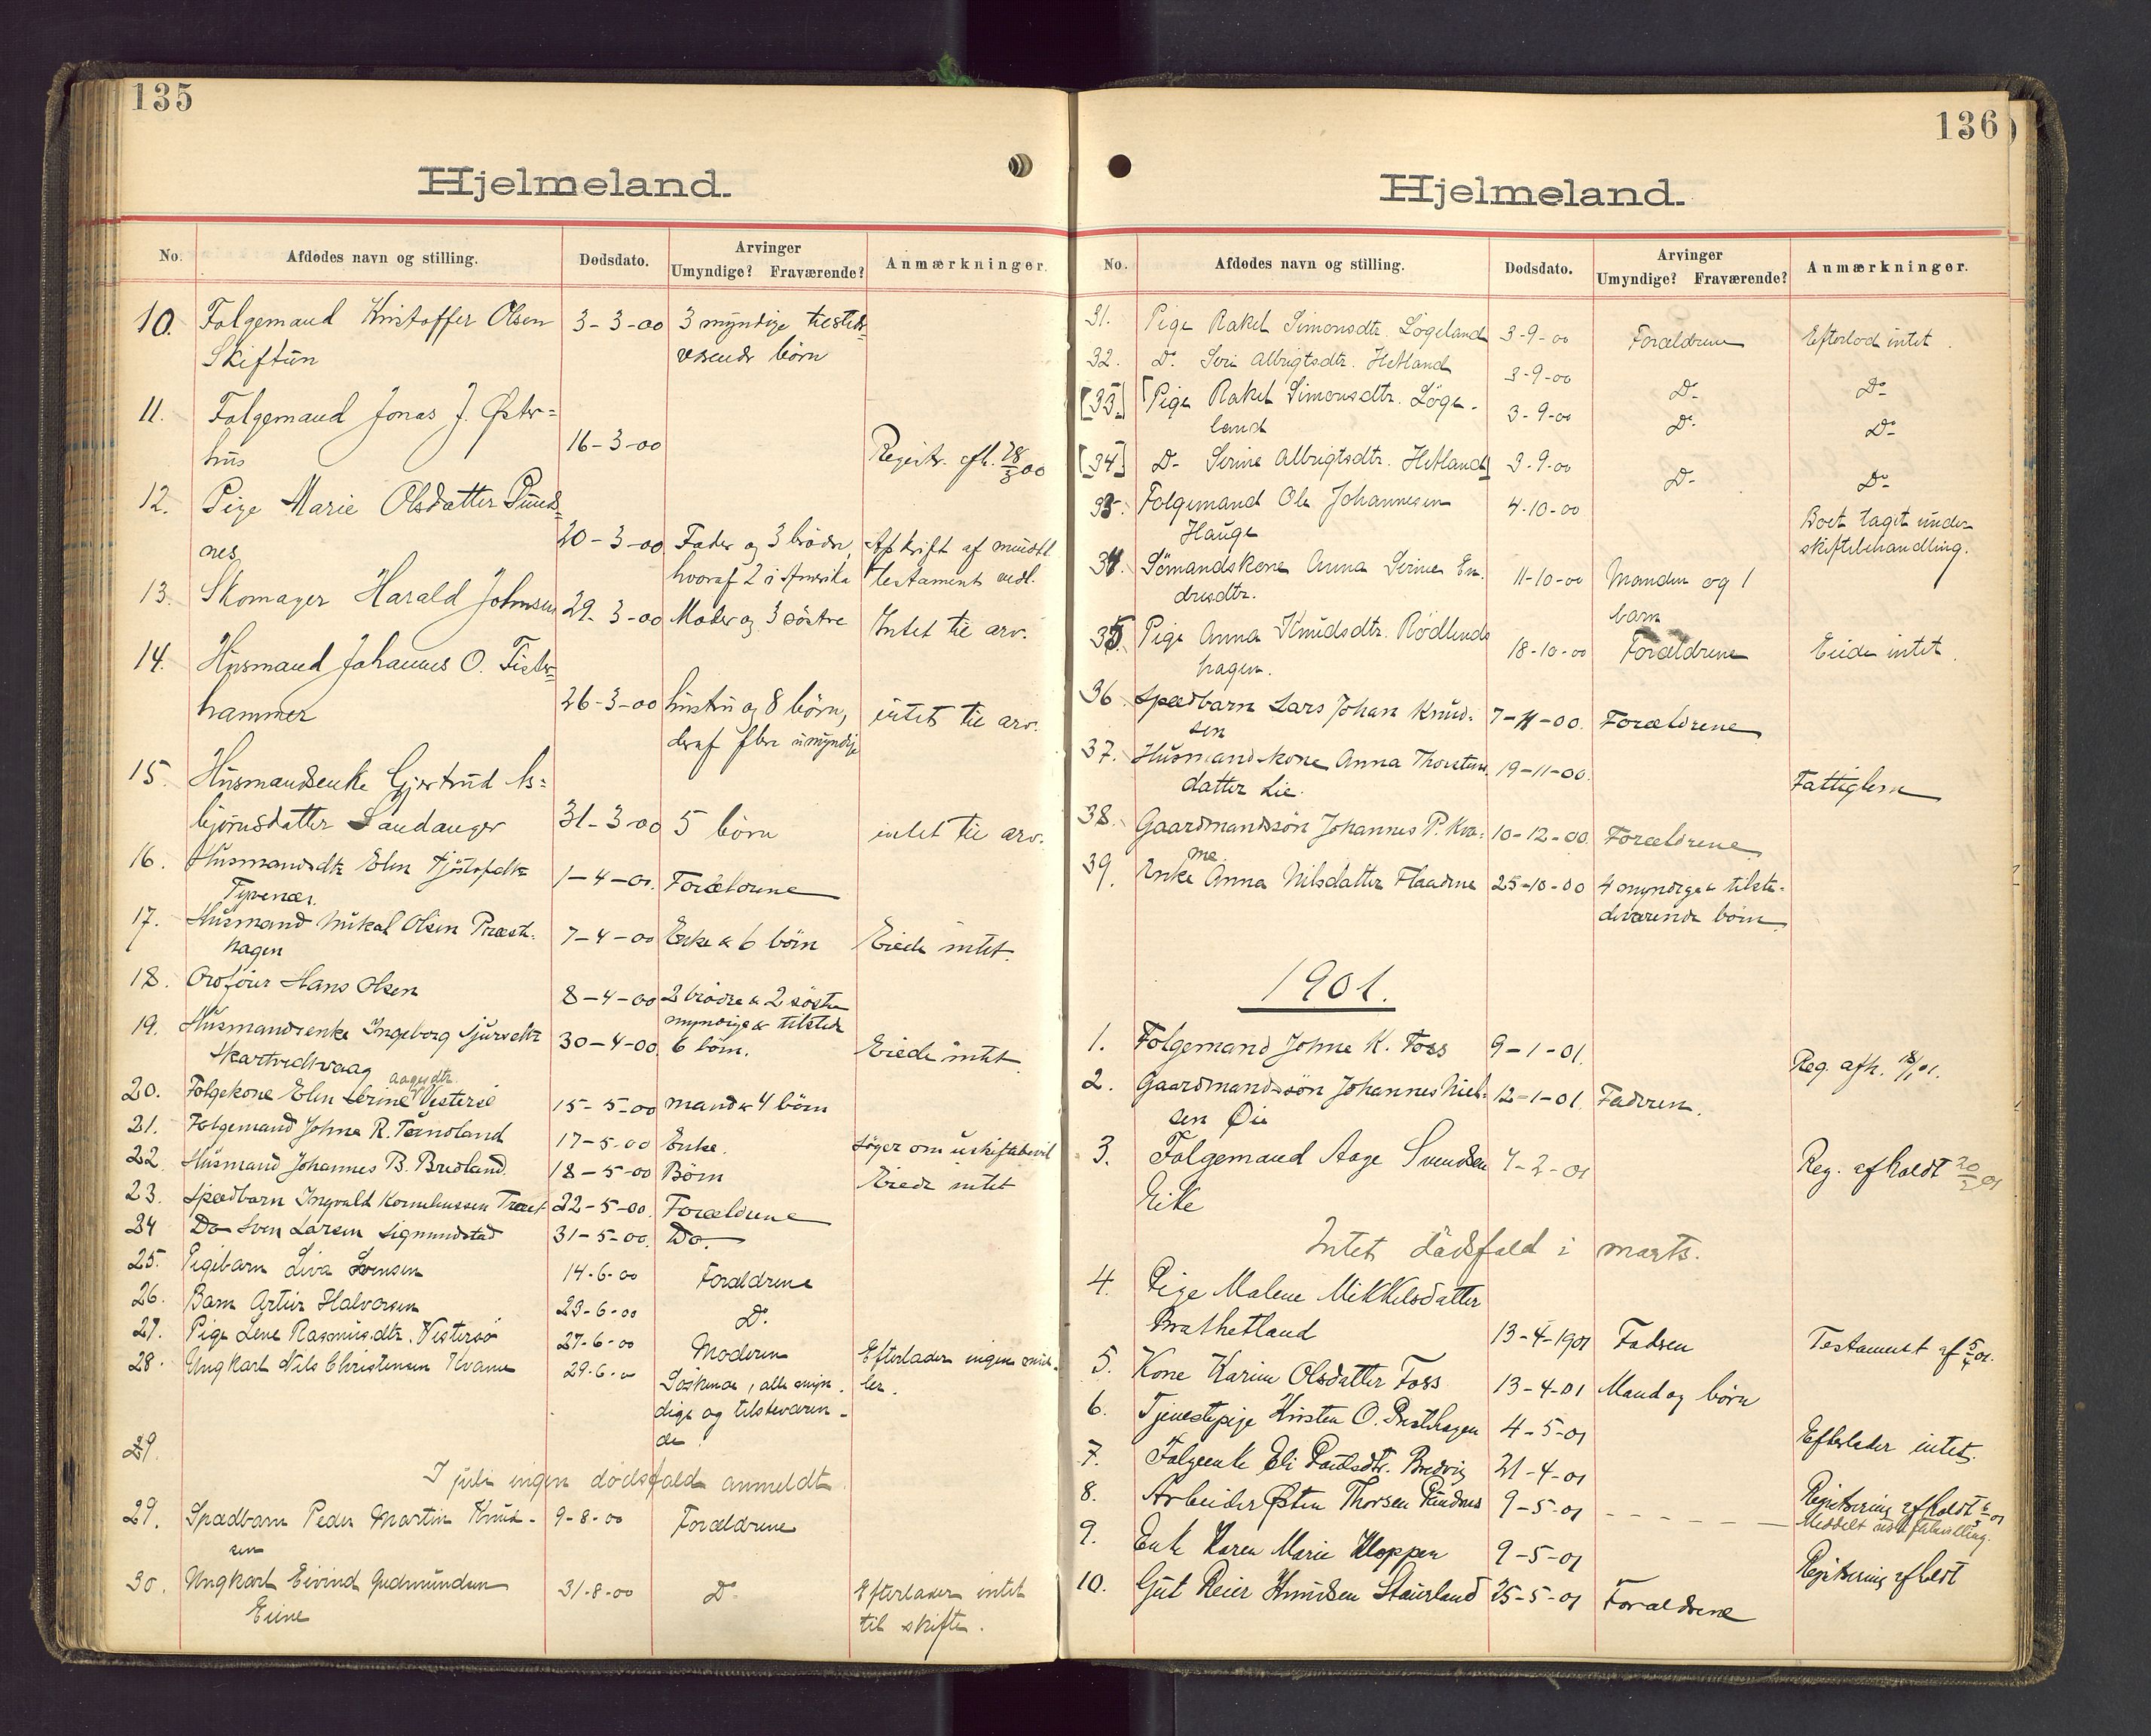 135
Hjelmeland.
No. Afdødes navn og stilling. Dødsdato. Arvinger Anmærkninger.
Umyndige? Fraværende?
10. Folgemand Kristoffer Olsen 3-3-00 3 myndige tilstede-
Skiftun værende børn
11. Folgemand Jonas J. Øster=
hus 16-3-00 Registr. afh. 28/3 00
12. Pige Marie Olsdatter Pund-
nes 20-3-00 Fader og 3 brødre, Afskrift af mundtl
hvoraf 2 i Amerika testament vedl.
13. Skomager Harald Johnsen 29-3-00 Moder og 3 søstre Intet til arv.
14. Husmand Johannes O. Fister=
hammer 26-3-00 hustru og 8 børn, intet til arv.
deraf flere umyndige
15. Husmandsenke Gjertrud As=
bjørnsdatter Landanger 31-3-00 5 børn intet til arv.
16. Husmandsdtr Elen Tjöstofsdtr 1-4-00. Forældrene
Tyvenæs.
17. Husmand Mikal Olsen Præst- 7-4-00 Enke & 6 börn Eiede intet.
hagen
18. Hans Olsen 8-4-00 2 brødre & 2 söstre
myndige & tilstede
19. Husmandsenke Ingeborg Sjursdtr 30-4-00. 6 börn. Eiede intet
Skartvedtvaag
20. Folgekone Elen Serine aagesdtr. Vestersö 15-5-00 mand & 4 börn
21. Folgemand Johne R. Tändland 17-5-00 Enke. söger om uskiftebevil
22. Husmand Johannes B. Bredland. 18-5-00 Börn Eiede intet
23. Spædbarn Ingvald Korneliussen Træet 22-5-00. Forældrene
24 Do Sven Larsen Sigmundstad 31-5-00. Do.
25. Pigebarn Liva Svensen 14-6-00 Forældrene
26. Barn Artur Halvorsen 23-6-00 Do
27. Pige Lene Rasmusdtr. Vestersø 27-6-00 Moderen Efterlader ingen mid-
28. Ungkarl Nils Christensen Kvame 29-6-00 Søskende, alle myn- ler.
dige og tilsteværen-
de
29.
I juli ingen dødsfald anmeldt.
29. Spædbarn Peder Martin Knud- 9-8-00 Forældrene
sen
30. Ungkarl Eivind Gudmundsen 31-8-00 Do Efterlader intet
Eiene til skifte.
136
Hjelmeland.
No. Afdødes navn og stilling. Dødsdato. Arvinger Anmærkninger.
Umyndige? Fraværende?
31. Pige Rakel Simonsdtr. Løgeland 3-9-00 Forældrene Efterlod intet.
32. Do. Seri Albrigtsdtr. Hetland 3-9-00 Do Do
[33.] [Pige Rakel Simonsdtr. Løge- 3-9-00 Do Do
land
[34] Do Serine Albrigtsdtr. Hetland] 3-9-00 Do Do
33. Folgemand Ole Johannesen 4-10-00 Boet taget under
Hauge skiftebehandling.
34. Sømandskone Anna Serine En- 11-10-00 Manden og 1
dresdtr. barn
35. Pige Anna Knudsdtr. Rødlends 18-10-00 Forældrene Eiede intet.
hagen.
36 Spædbarn Lars Johan Knud- 7-11-00. Forældrene
sen
37. Husmandskone Anna Thorsteins 19-11-00. Fattiglem
datter Lie.
38. Gaardmandssön Johannes P. Kva- 10-12-00. Forældrene
me
39. Enke Anna Nilsdatter Flaadene 25-10-00 4 myndige & tilste-
deværende börn
1901.
1. Folgemand Johne K. Foss 9-1-01. Reg. afh. 18/1 01.
2. Gaardmandssön Johannes Niel- 12-1-01. Faderen.
sen Øie
3. Folgemand Aage Svendsen 7-2-01 Reg. afholdt 20/2 01
Eike
Intet dødsfald i marts.
4. Pige Malene Mikkelsdatter
Brathetland 13-4-1901 Fadren Testament af 5/4 01.
5. Kone Karine Olsdatter Foss 13-4-01 Mand og børn
6. Tjenestepige Kirsten O. Prestehagen 4-5-01 Efterlader intet.
7. Folgeenke Eli Paulsdtr. Bredvig 21-4-01
8. Arbeider Østen Thorsen Pundnes 9-5-01 Registrering afholdt
Meddelt uskiftebevilling.
9. Enke Karen Marie Kloppen 9-5-01 Registrering afholdt
10. Gut Reier Knudsen Staurland 25-5-01 Forældrene